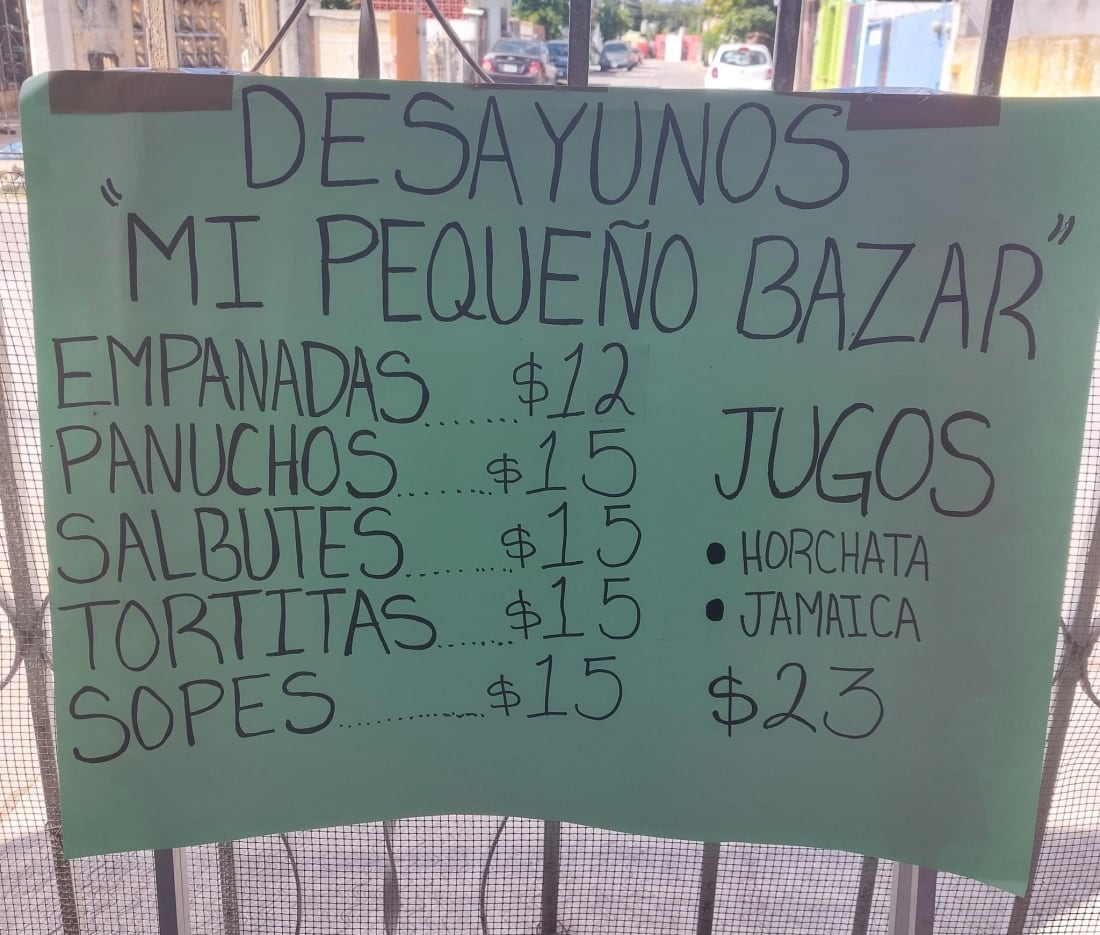 DESAYUNOS
"MI PEQUEÑO BAZAR"
EMPANADAS.......$12
PANUCHOS.......$15
SALBUTES........$15
TORTITAS.......$15
SOPES.............$15
JUGOS
• HORCHATA
• JAMAICA
$23